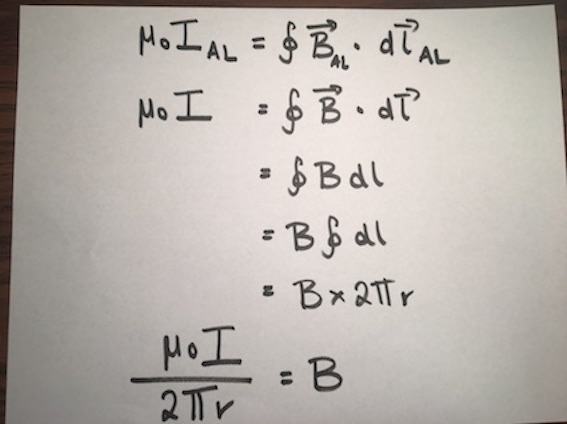 μ₀I_AL = ∮ B⃗_AL · dl⃗_AL
μ₀I = ∮ B⃗ · dl⃗
= ∮ B dl
= B ∮ dl
= B × 2πr
μ₀I / 2πr = B